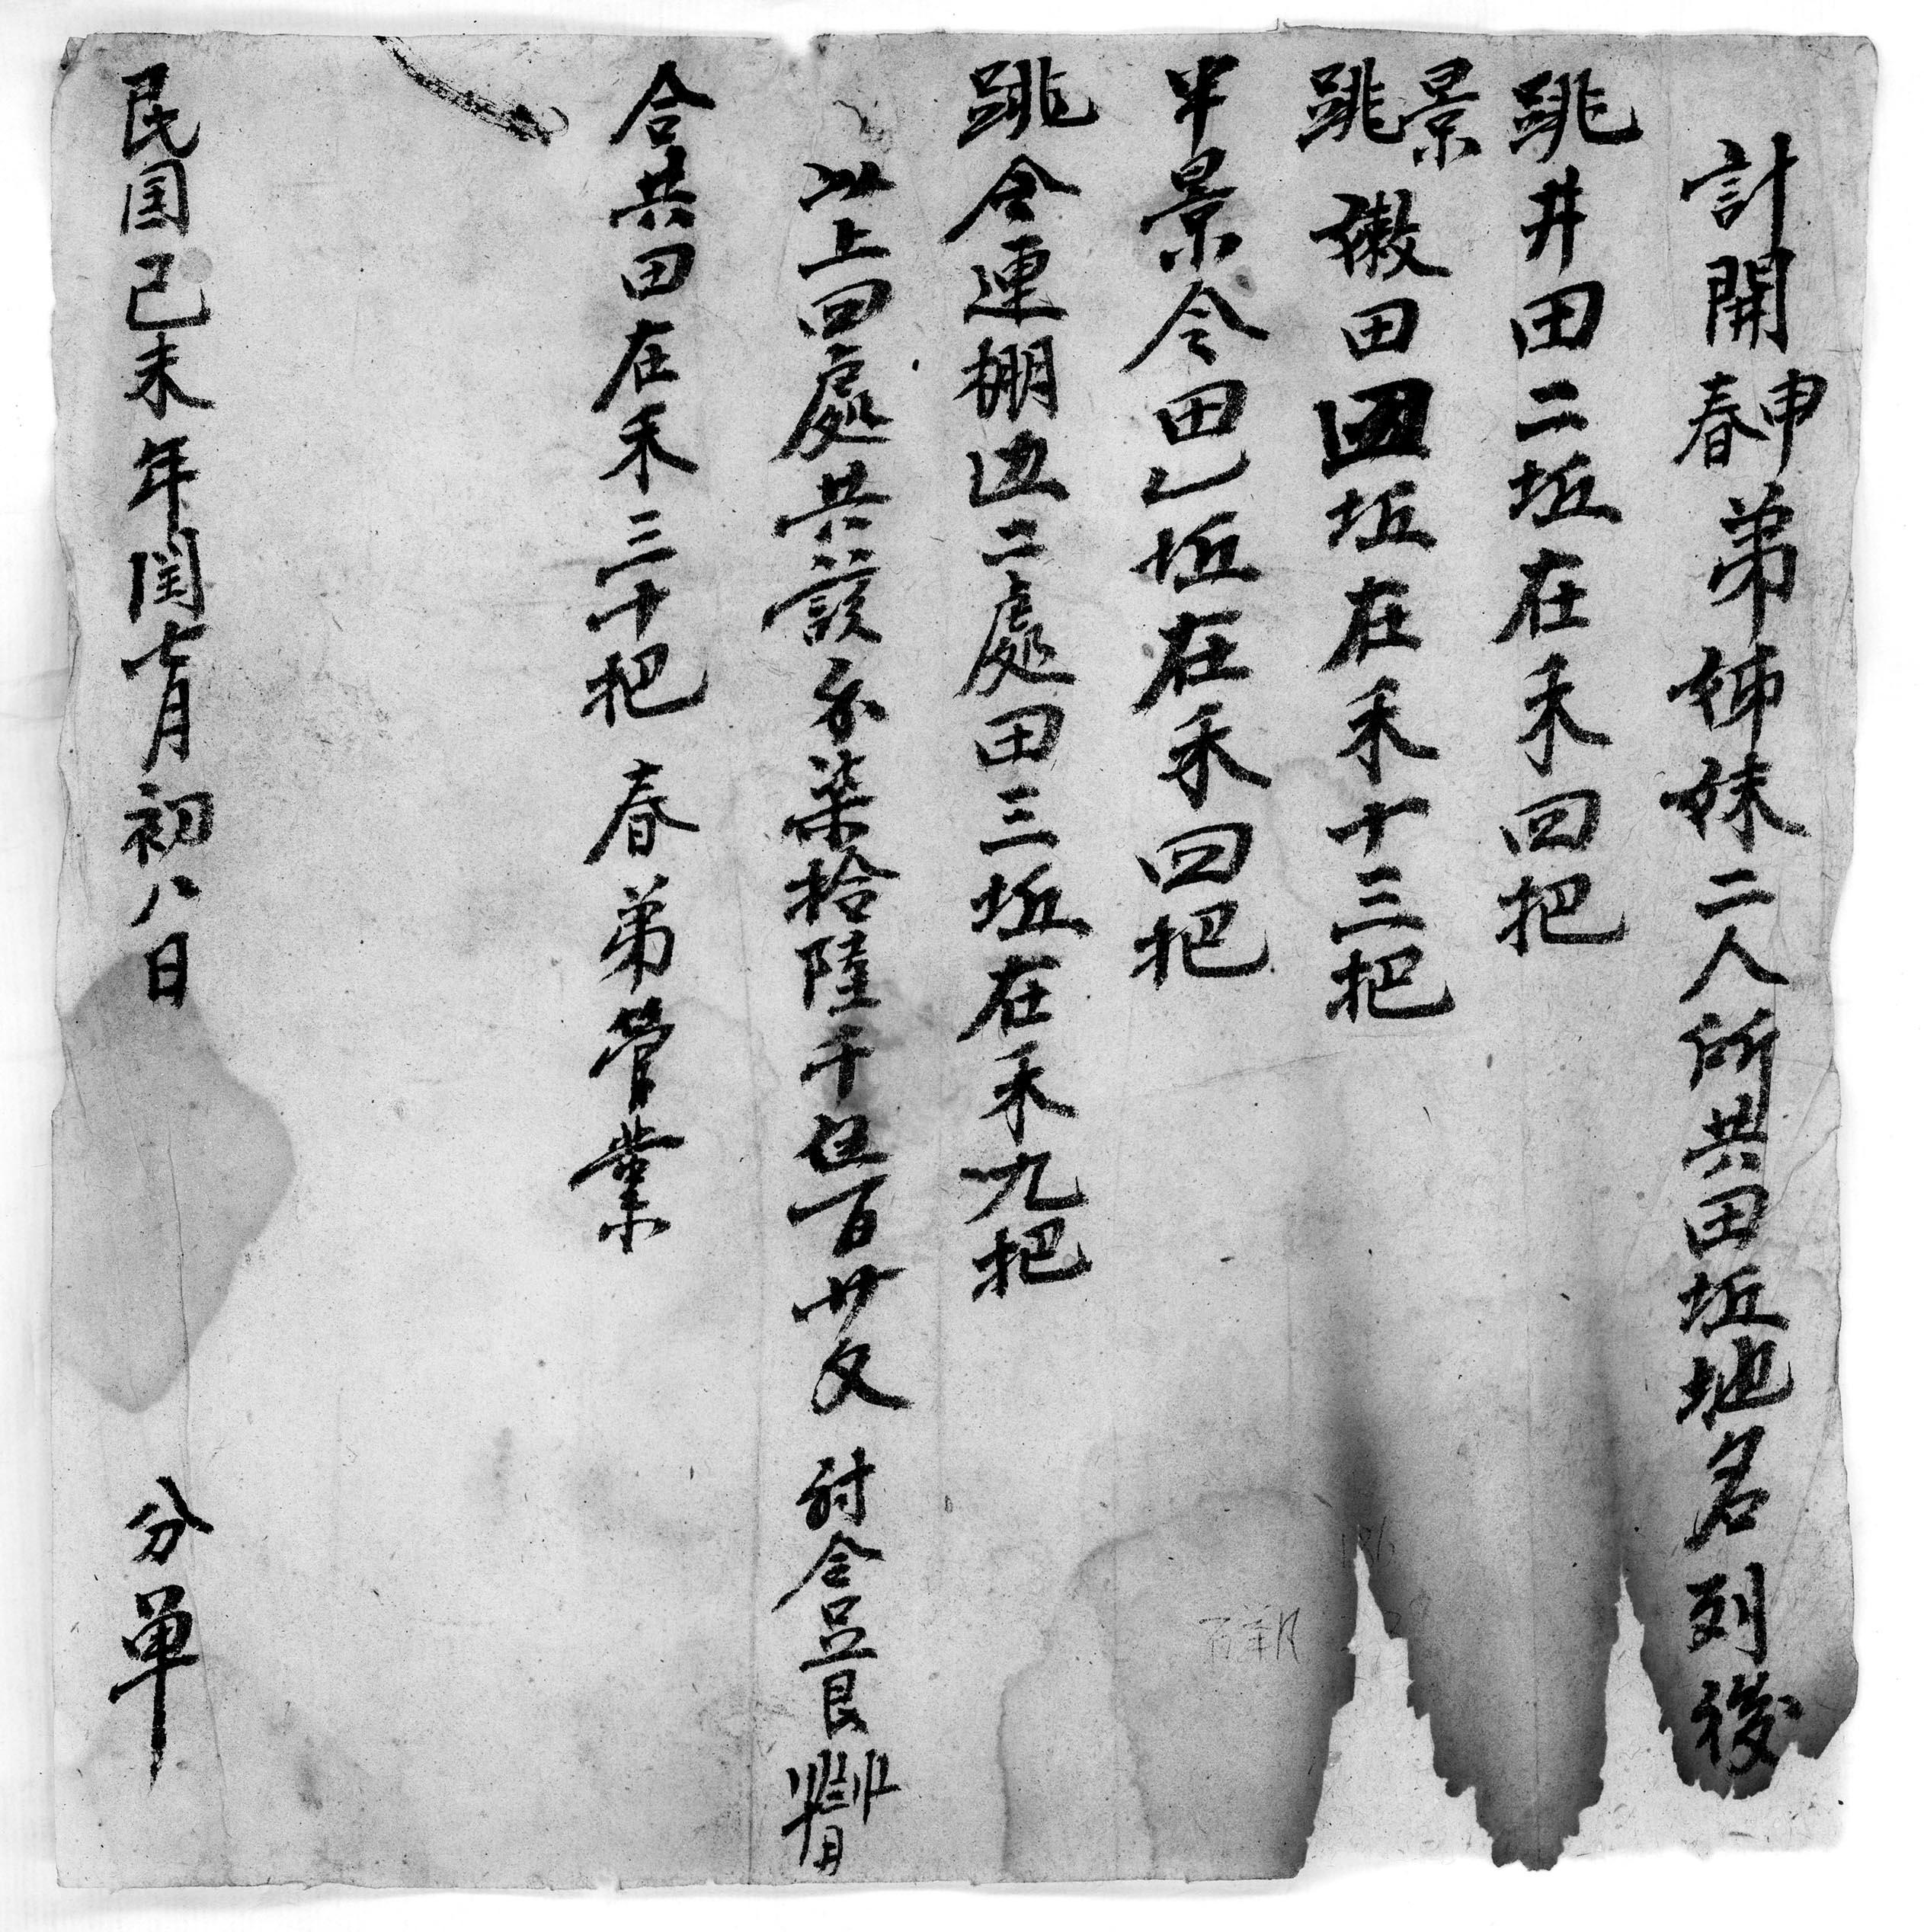 計開申春弟姊妹二人所共田坵地名列後
跳井田二坵在禾四把
景跳墩田四坵在禾十三把
半景今田乙坵在禾四把
跳今連棚边二處田三坵在禾九把
以上四處共該分柒拾陸千伍百廿文 討今足艮
合共田在禾三十把 春弟管業
民国己未年閏七月初八日 分單